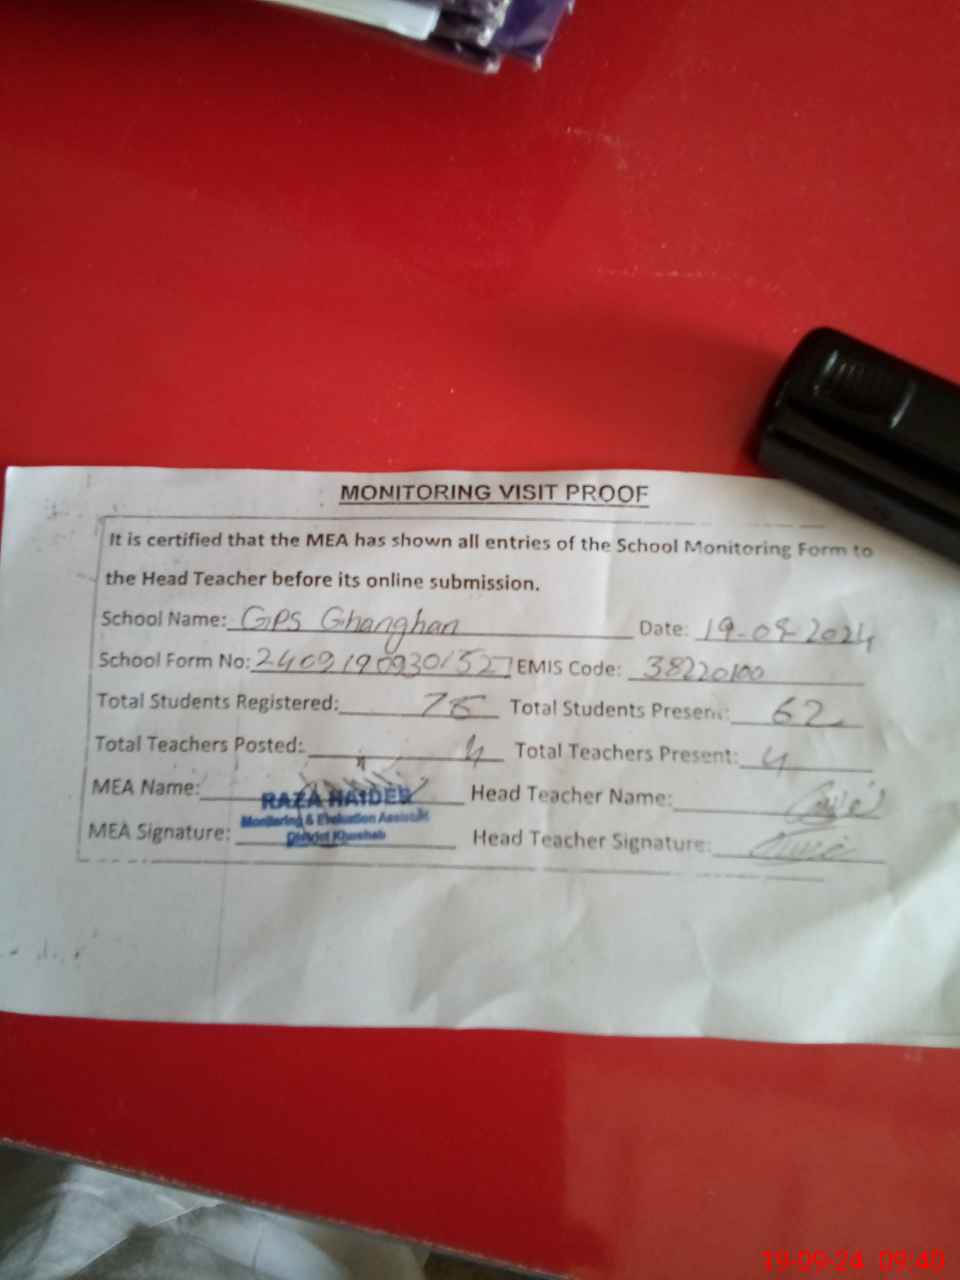 MONITORING VISIT PROOF
It is certified that the MEA has shown all entries of the School Monitoring Form to
the Head Teacher before its online submission.
School Name: GPS Ghanghan Date: 19-09-2024
School Form No: 2409190930152 EMIS Code: 38220100
Total Students Registered: 75 Total Students Present: 62
Total Teachers Posted: 4 Total Teachers Present: 4
MEA Name: Head Teacher Name:
RAZA HAIDER
Monitoring & Evaluation Assistant
MEA Signature: Head Teacher Signature:
District Khushab
19-09-24 09:40